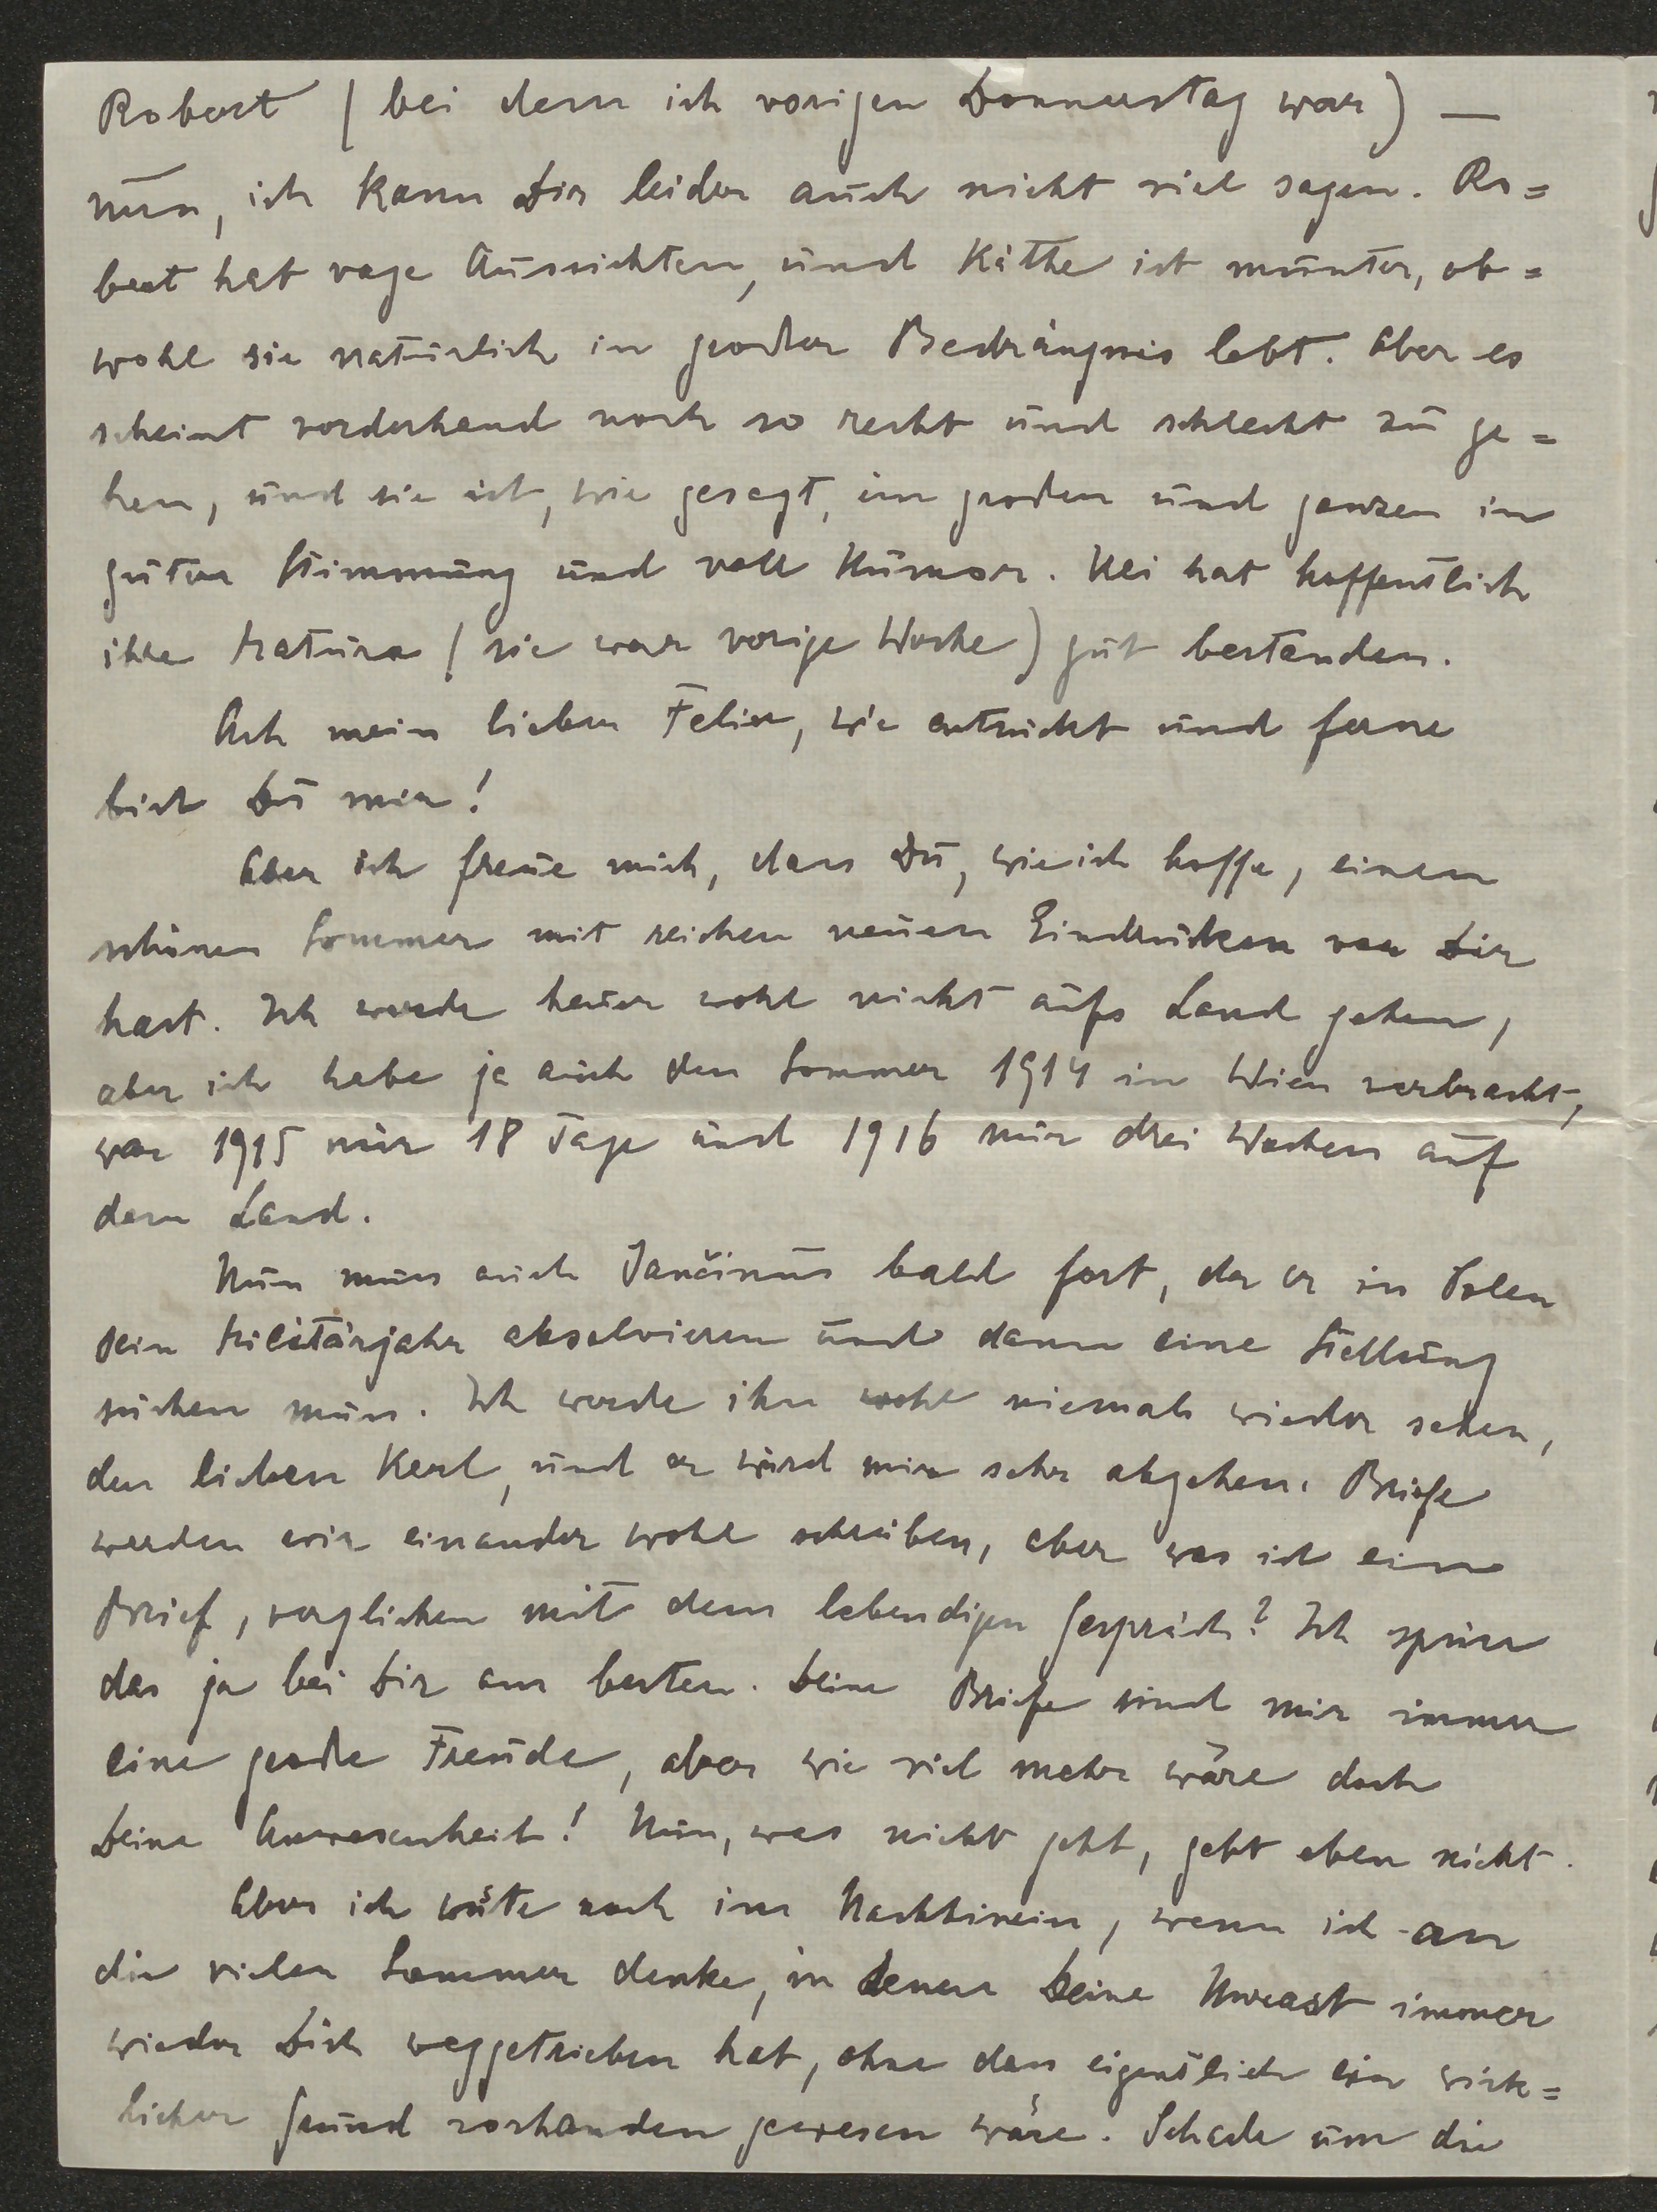 Robert (bei dem ich vorigen Donnerstag war) —
nun, ich kann Dir leider auch nicht viel sagen. Ro=
bert hat vage Aussichten, und Käthe ist munter, ob=
wohl sie natürlich in großer Bedrängnis lebt. Aber es
scheint vorderhand noch so recht und schlecht zu ge=
hen, und sie ist, wie gesagt, im großen und ganzen in
guter Stimmung und voll Humor. Uli hat hoffentlich
ihre Matura (sie war vorige Woche) gut bestanden.
Ach mein lieber Felix, wie entrückt und ferne
bist Du mir!
Aber ich freue mich, dass Du, wie ich hoffe, einen
schönen Sommer mit reichen neuen Eindrücken vor Dir
hast. Ich werde heuer wohl nicht aufs Land gehen,
aber ich habe ja auch den Sommer 1914 in Wien verbracht,
war 1915 nur 18 Tage und 1916 nur drei Wochen auf
dem Land.
Nun muss auch Jančinus bald fort, da er in Polen
sein Militärjahr absolvieren und dann eine Stellung
suchen muss. Ich werde ihn wohl niemals wieder sehen,
den lieben Kerl, und er wird mir sehr abgehen. Briefe
werden wir einander wohl schreiben, aber was ist ein
Brief, verglichen mit dem lebendigen Gespräch? Ich spüre
das ja bei Dir am besten. Deine Briefe sind mir immer
eine große Freude, aber wie viel mehr wäre doch
Deine Anwesenheit! Nun, was nicht geht, geht eben nicht.
Aber ich wüte noch im Nachhinein, wenn ich an
die vielen Sommer denke, in denen Deine Unrast immer
wieder Dich weggetrieben hat, ohne dass eigentlich ein wirk=
licher Grund vorhanden gewesen wäre. Schade um die